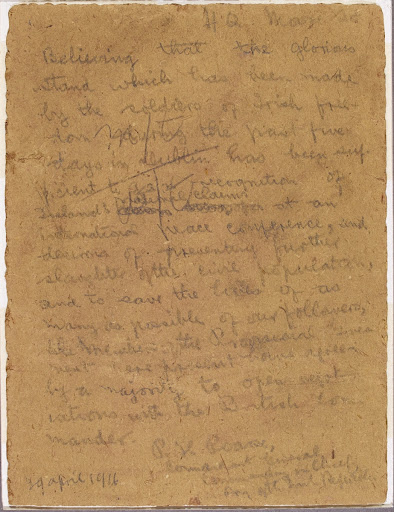 H.Q. Moore St.
Believing that the glorious
stand which has been made
by the soldiers of Irish free-
dom during the past five
days in Dublin has been suf-
ficient to gain recognition of
Ireland's national claim at an
international peace conference, and
desirous of preventing further
slaughter of the civil population,
and to save the lives of as
many as possible of our followers,
the members of the Provisional Govern-
ment here present have agreed
by a majority to open negot-
iations with the British Com-
mander.
P. H. Pearse,
Commandant General,
Commander in Chief,
Army of the Irish Republic
29 April 1916